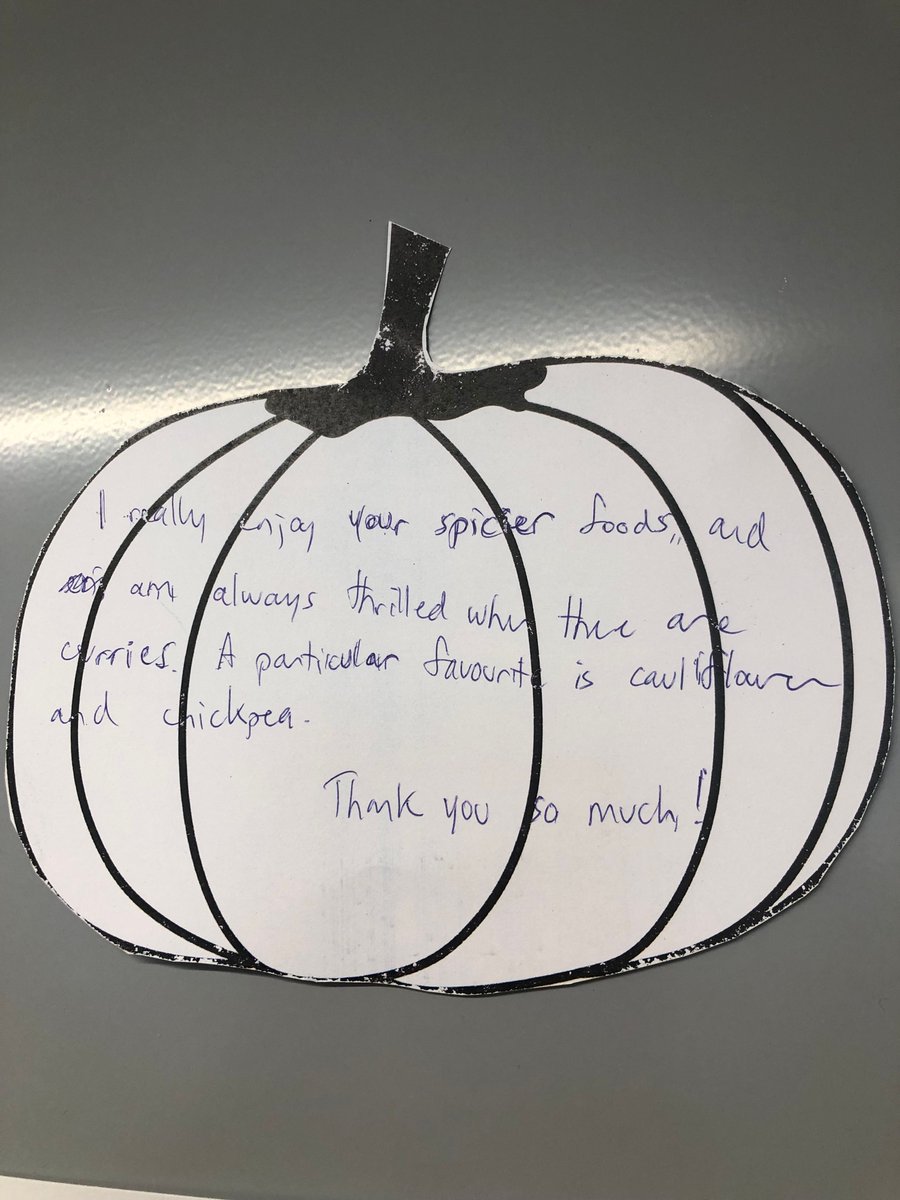 I really enjoy your spicier foods, and
am always thrilled when there are
curries. A particular favourite is cauliflower
and chickpea.
Thank you so much!